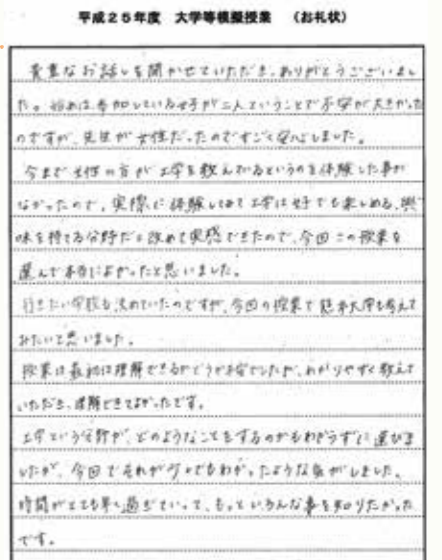 平成25年度 大学等模擬授業 (お礼状)
貴重なお話しを聞かせていただき、ありがとうございまし
た。始めは参加している女子が二人ということで不安が大きかった
のですが、先生が女性だったのですごく安心しました。
今まで女性の方が工学を教えているというのを体験した事が
なかったので、実際に体験してみて工学は女子でも楽しめる、興
味を持てる分野だと改めて実感できたので、今回この授業を
選んで本当によかったと思いました。
行きたい学校も決めていたのですが、今回の授業で熊本大学も考えて
みたいと思いました。
授業は最初は理解できるかどうか不安でしたが、わかりやすく教えて
いただき、理解できてよかったです。
工学という分野が、どのようなことをするのかもわからずに選びま
したが、今回でそれが少しでもわかったような気がしました。
時間がとても早く過ぎていって、もっといろんな事を知りたかった
です。